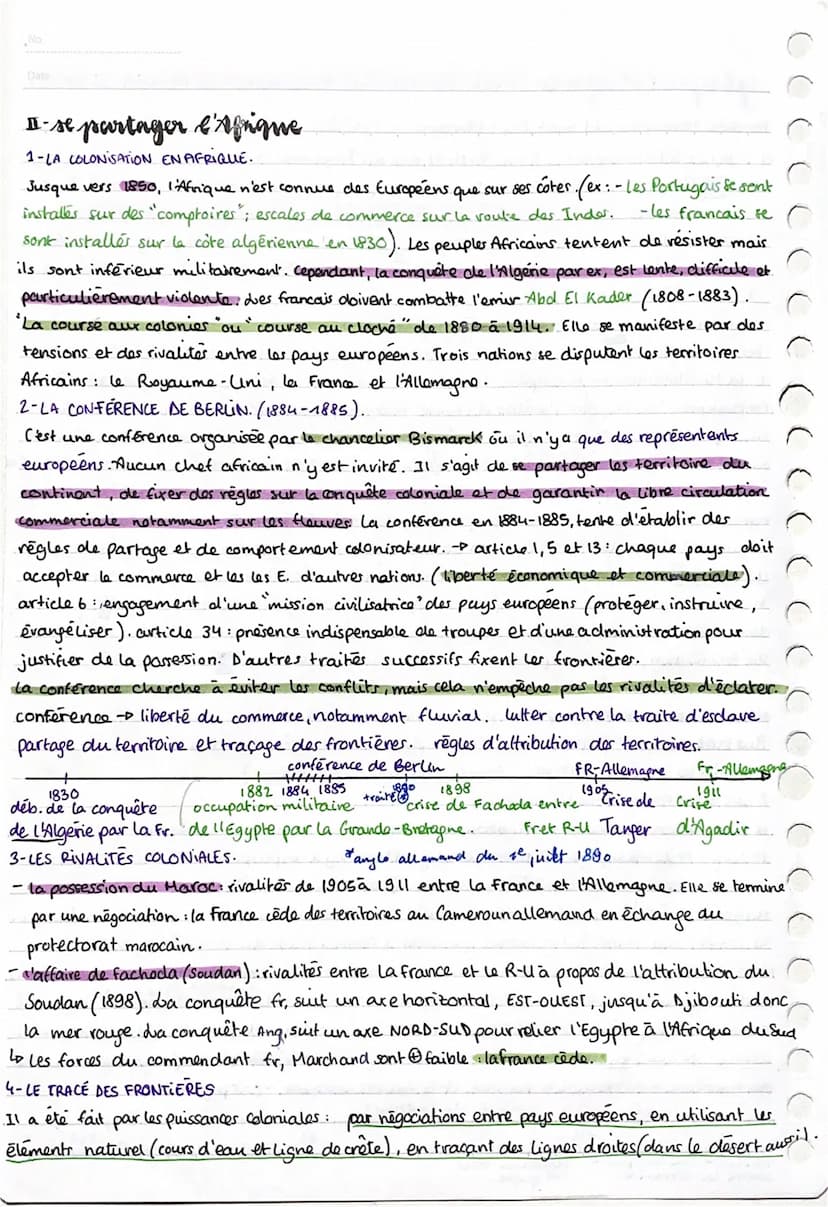 No
Date
II-se partager l'Afrique
1-LA COLONISATION EN AFRIQUE.
Jusque vers 1850, l'Afrique n'est connue des Européens que sur ses côtes. (ex: - les Portugais se sont
installés sur des "comptoires"; escales de commerce sur la route des Indes. - les francais se
sont installés sur la côte algérienne en 1830). Les peuples Africains tentent de résister mais
ils sont inférieur militairement. cependant, la conquête de l'Algérie par ex, est lente, difficile et
particulièrement violente. Les francais doivent combatte l'emir Abd El Kader (1808-1883).
"La course aux colonies" ou "course au cloché" de 1880 à 1914. Elle se manifeste par des
tensions et des rivalités entre les pays européens. Trois nations se disputent les territoires
Africains : le Royaume-Uni, la France et l'Allemagne.
2-LA CONFÉRENCE DE BERLIN. (1884-1885).
C'est une conférence organisée par le chancelier Bismarck où il n'y a que des représentents
européens. Aucun chef africain n'y est invité. Il s'agit de se partager les territoire du
continent, de fixer des règles sur la conquête coloniale et de garantir la libre circulation
commerciale notamment sur les fleuves. La conférence en 1884-1885, tente d'établir des
règles de partage et de comportement colonisateur. → article 1, 5 et 13 : chaque pays doit
accepter le commerce et les les E. d'autres nations. (liberté économique et commerciale).
article 6 : engagement d'une "mission civilisatrice" des pays européens (protéger, instruire,
évangéliser). article 34 : présence indispensable de troupes et d'une administration pour
justifier de la possession. D'autres traités successifs fixent les frontières.
La conférence cherche à éviter les conflits, mais cela n'empêche pas les rivalités d'éclater.
conférence → liberté du commerce, notamment fluvial. lutter contre la traite d'esclave
partage du territoire et traçage des frontières. règles d'attribution des territoires.
conférence de Berlin FR-Allemagne Fr-Allemagne
1830 1882 1884 1885 1890 1898 1905 1911
déb. de la conquête occupation militaire traité* crise de Fachoda entre Crise de Crise
de l'Algérie par la Fr. de l'Egypte par la Grande-Bretagne. Fr et R-U Tanger d'Agadir
3-LES RIVALITÉS COLONIALES. *anglo allemand du 1e juillt 1890
- la possession du Maroc : rivalités de 1905 à 1911 entre la France et l'Allemagne. Elle se termine
par une négociation : la France cède des territoires au Cameroun allemand en échange du
protectorat marocain.
- l'affaire de Fachoda (Soudan) : rivalités entre La France et le R-U à propos de l'attribution du
Soudan (1898). La conquête fr, suit un axe horizontal, EST-OUEST, jusqu'à Djibouti donc
la mer rouge. La conquête Ang, suit un axe NORD-SUD pour relier l'Egypte à l'Afrique du Sud
↳ Les forces du commendant fr, Marchand sont ⊕ faible : la france cède.
4-LE TRACÉ DES FRONTIÈRES
Il a été fait par les puissances coloniales : par négociations entre pays européens, en utilisant les
éléments naturel (cours d'eau et Ligne de crête), en traçant des Lignes droites (dans le désert aussi).